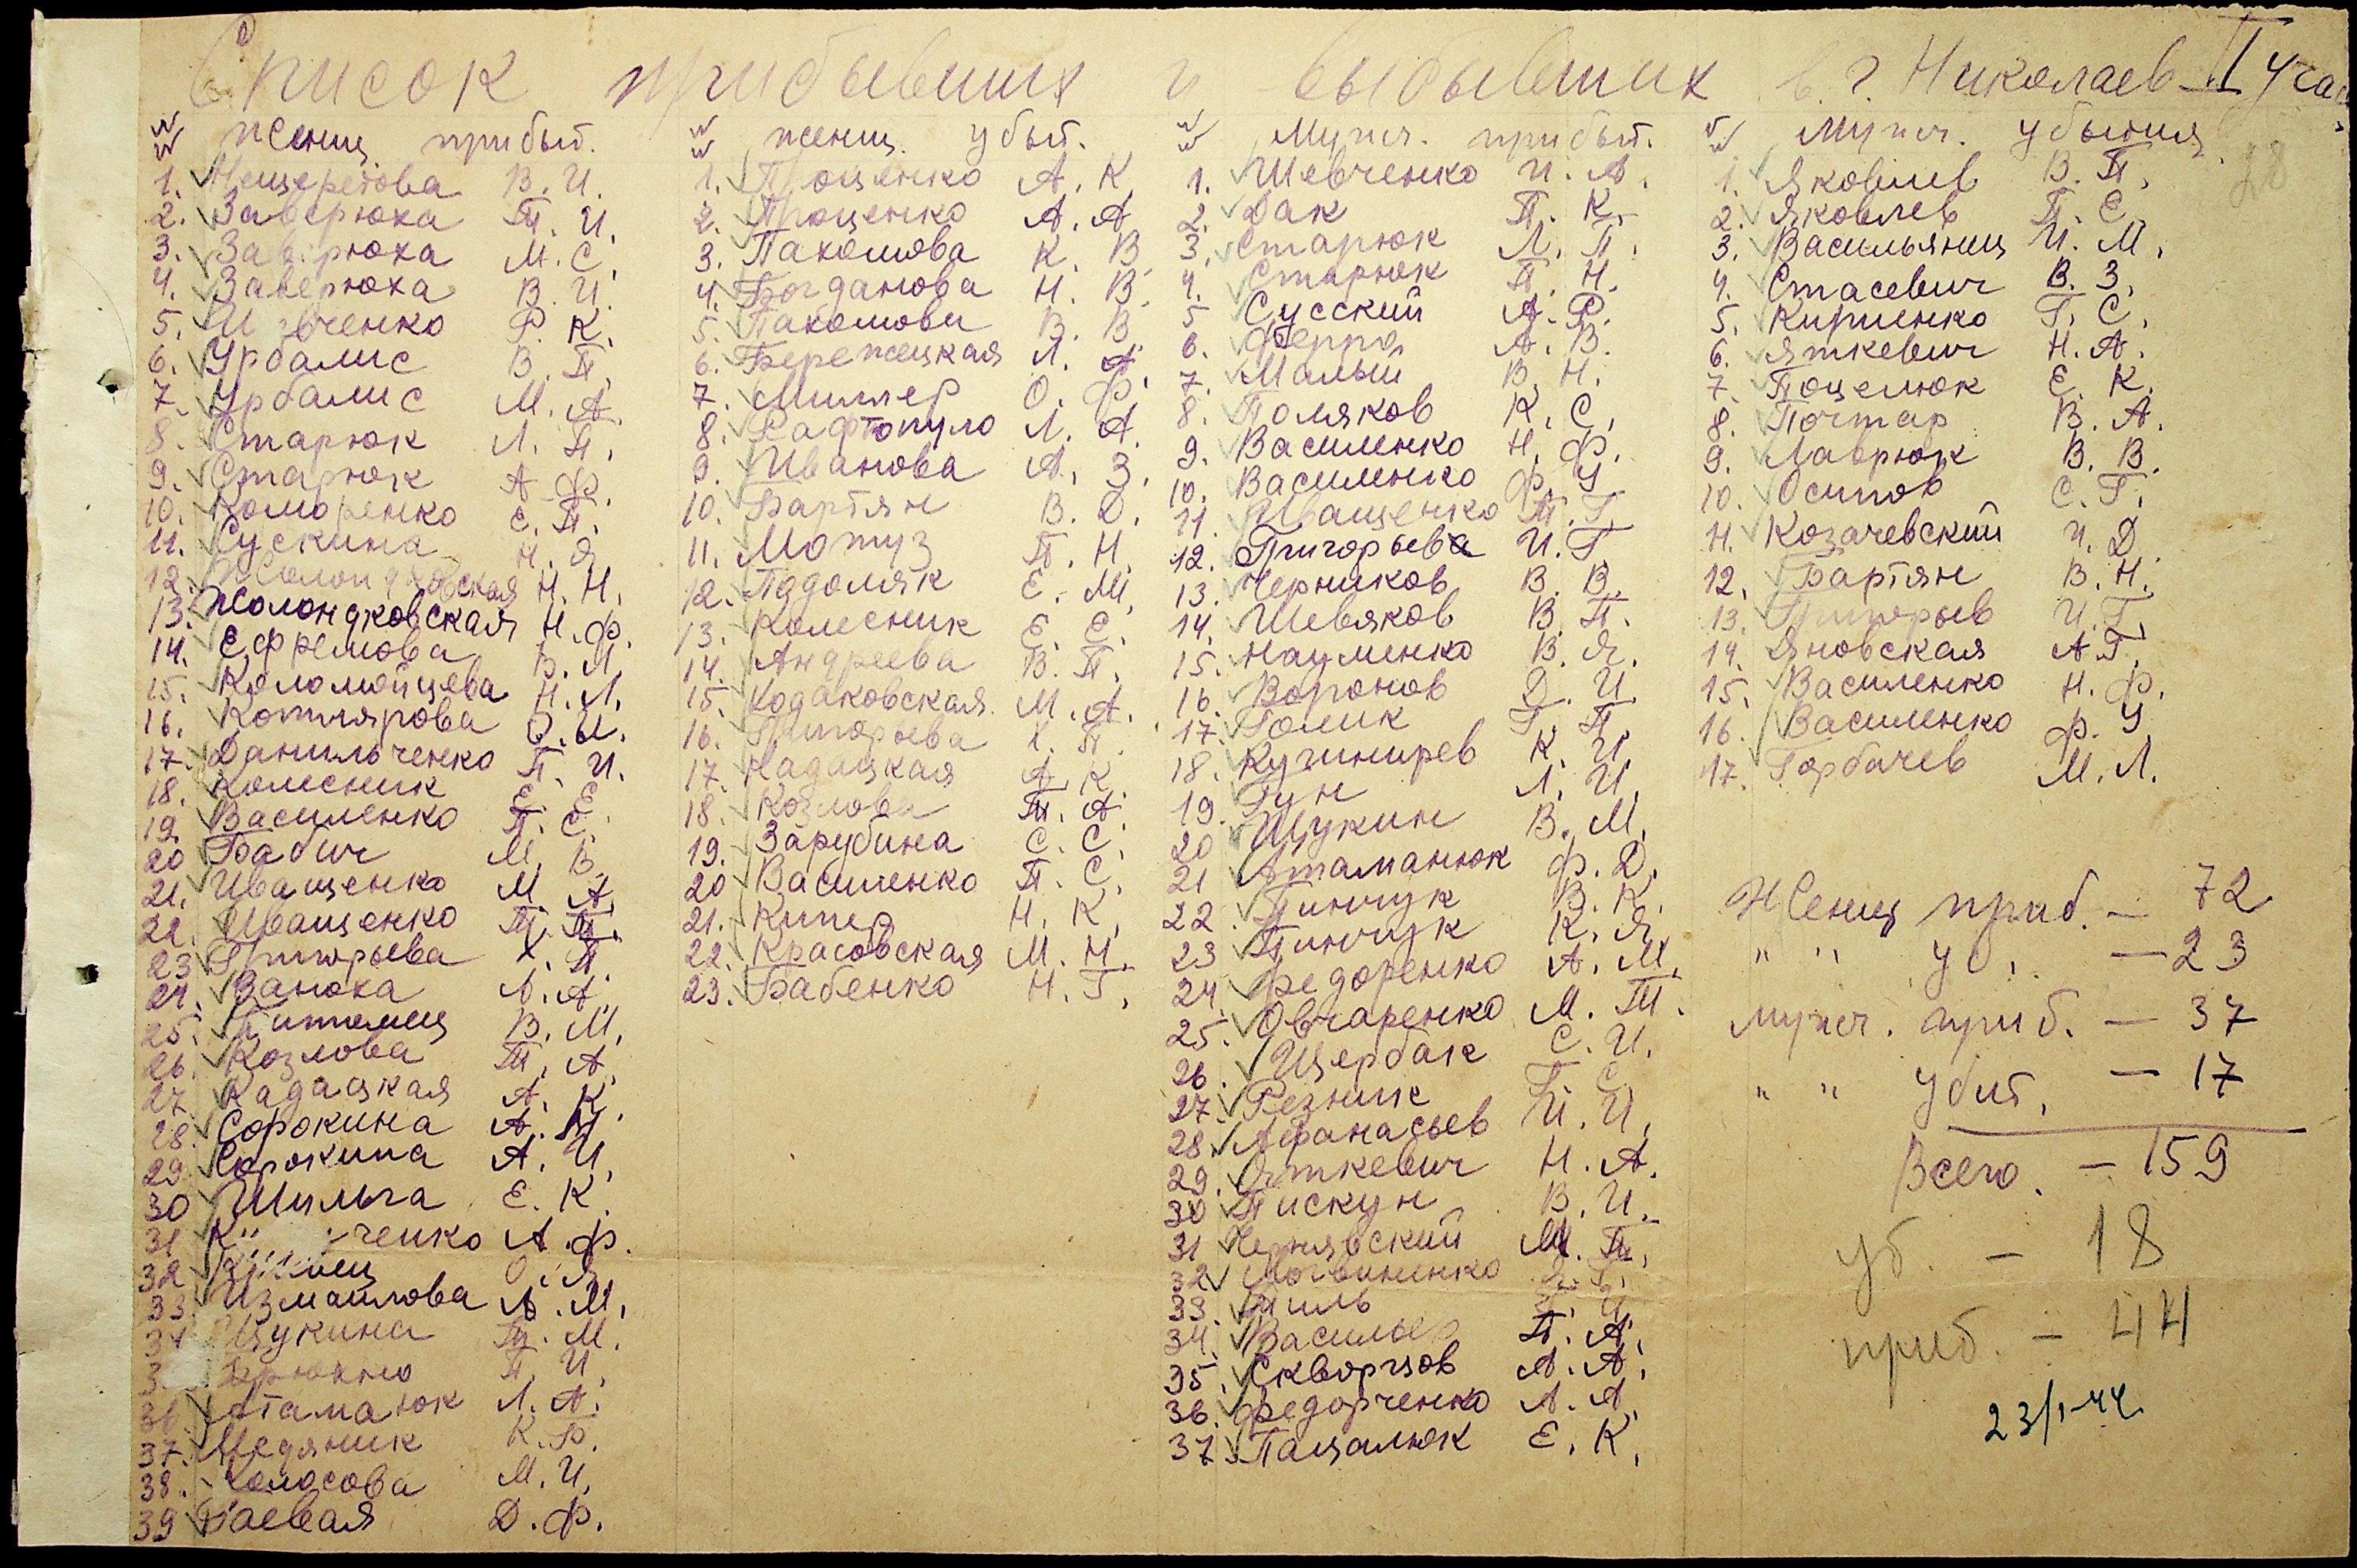 Список прибывших и выбывших в г. Николаев II участ
№№ женщ. прибыт.
1. Нещеретова В. И.
2. Заверюха П. И.
3. Заверюха М. С.
4. Заверюха В. И.
5. Шевченко Р. К.
6. Урбалис В. П.
7. Урбалис М. А.
8. Старюк Л. П.
9. Старюк А. Ф.
10. Коморенко Е. П.
11. Сускина Н. Я.
12. Жолондковская Н. Н.
13. Жолондковская Н. Ф.
14. Ефремова В. Л.
15. Коломойцева Н. Л.
16. Котлярова О. И.
17. Данильченко П. И.
18. Колесник Е. Е.
19. Василенко П. С.
20 Бабич М. В.
21. Иващенко М. А.
22. Иващенко Т. Т.
23 Григорьева Х. П.
24. Ванюха А. А.
25. Битомец В. М.
26. Козлова Т. А.
27 Кадацкая А. К.
28. Сорокина А. М.
29 Сорокина А. И.
30 Шульга Е. К.
31 ченко А. Ф.
32 О. Я.
33. Измаилова А. М.
34 Щукина Т. М.
П. И.
36. Атаманюк Л. А.
37. Медяник К. Р.
38. Колосова М. И.
39 Гаевая Д. Ф.
№№ женщ. убыт.
1. Проценко А. К.
2. Проценко А. А.
3. Пахомова К. В.
4. Богданова Н. В.
5. Пахомова В. В.
6. Бережецкая Л. А.
7. Миллер О. Ф.
8. Рафтопуло Л. А.
9. Иванова А. З.
10. Бартян В. Д.
11. Мотуз П. Н.
12. Подоляк Е. М.
13. Колесник Е. Е.
14. Андреева В. П.
15. Ходаковская М. А.
16. Григорьева Х. П.
17. Кадацкая А. К.
18. Козлова Т. А.
19. Зарубина С. С.
20 Василенко П. С.
21. Кипер Н. К.
22. Красовская М. Н.
23. Бабенко Н. Г.
№№ Мужч. прибыт.
1. Шевченко И. А.
2. Дак П. К.
3. Старюк Л. П.
4. Старюк П. Н.
5 Сусский А. Р.
6. Ферро А. В.
7. Малый В. Н.
8. Поляков К. С.
9. Василенко Н. Ф.
10. Василенко Ф. У
11. Иващенко Т. Г.
12. Григорьев И. Г.
13. Черников В. В.
14. Шевяков В. П.
15. Науменко В. Я.
16. Воронов Д. И.
17. Голик Г. П.
18. Кушнирев К. И.
19. Гун Л. И.
20 Щукин В. М.
21 Атаманюк Ф. Д.
22. Пинчук В. К.
23 Пинчук К. Я.
24. Федоренко А. М.
25. Овчаренко М. Т.
26. Щербак С. И.
27. Резник Г. С.
28. Афанасьев И. И.
29. Яткевич Н. А.
30 Пискун В. И.
31 Чернявский М. П.
32 Логвиненко
33. Гиль
34. Васильев П. А.
35. Скворцов А. А.
36. Федорченко А. А.
37. Пацалюк Е. К.
№№ Мужч. убытия
1. Яковлев В. П.
2. Яковлев П. С.
3. Васильянец И. М.
4. Стасевич В. З.
5. Кириенко Г. С.
6. Яткевич Н. А.
7. Поцелюк Е. К.
8. Почтар В. А.
9. Лаврюк В. В.
10. Осипов С. Г.
11. Козачевский И. Д.
12. Бартян В. Н.
13. Григорьев И. Г.
14. Яновская А. Г.
15. Василенко Н. Ф.
16. Василенко Ф. У
17. Горбачев М. Л.
Женщ приб. — 72
" " уб. — 23
мужч. приб. — 37
" " убыт. — 17
Всего. — 159
уб. — 18
приб. — 44
23/I-44
28